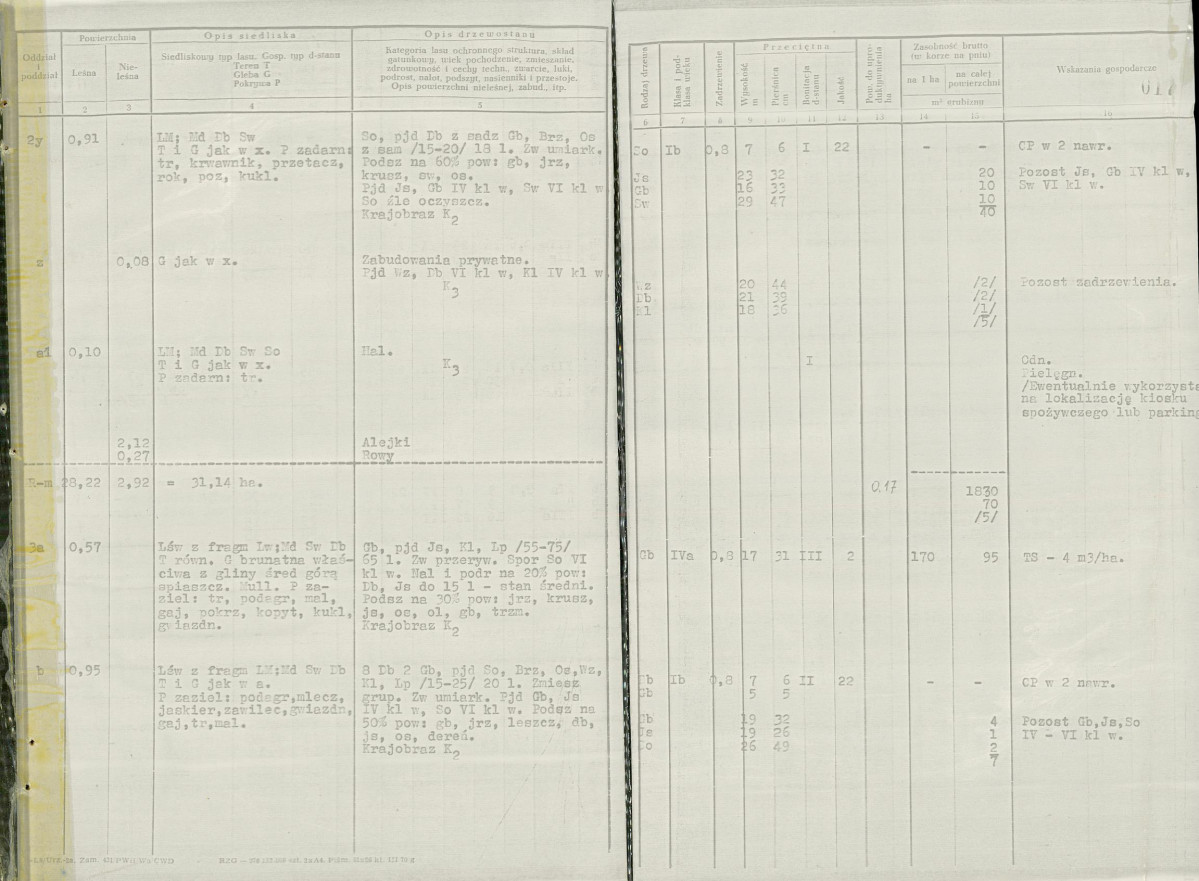 Oddział i poddział
Powierzchnia
Leśna
Nieleśna
Opis siedliska
Siedliskowy typ lasu. Gosp. typ d-stanu
Teren T
Gleba G
Pokrywa P
Opis drzewostanu
Kategoria lasu ochronnego struktura, skład
gatunkowy, wiek pochodzenie, zmieszanie,
zdrowotność i cechy techn., zwarcie, luki,
podrost, nalot, podszyt, nasienniki i przestoje.
Opis powierzchni nieleśnej, zabud., itp.
1 2 3 4 5
2y 0,91
LM; Md Db Sw
T i G jak w x. P zadarn:
tr, krwawnik, przetacz,
rok, poz, kukl.
So, pjd Db z sadz Gb, Brz, Os
z sam /15-20/ 18 l. Zw umiark.
Podsz na 60% pow: gb, jrz,
krusz, sw, os.
Pjd Js, Gb IV kl w, Sw VI kl w
So źle oczyszcz.
Krajobraz K2
z 0,08 G jak w x.
Zabudowania prywatne.
Pjd Wz, Db VI kl w, Kl IV kl w
K3
a1 0,10
LM; Md Db Sw So
T i G jak w x.
P zadarn: tr.
Hal.
K3
2,12 Alejki
0,27 Rowy
R-m 28,22 2,92 = 31,14 ha.
3a 0,57
Lśw z fragm Lw;Md Sw Db
T równ. G brunatna właś-
ciwa z gliny śred górą
spiaszcz. Mull. P za-
ziel: tr, podagr, mal,
gaj, pokrz, kopyt, kukl,
gwiazdn.
Gb, pjd Js, Kl, Lp /55-75/
65 l. Zw przeryw. Spor So VI
kl w. Nal i podr na 20% pow:
Db, Js do 15 l - stan średni.
Podsz na 30% pow: jrz, krusz,
js, os, ol, gb, trzm.
Krajobraz K2
b 0,95
Lśw z fragm LM;Md Sw Db
T i G jak w a.
P zaziel: podagr,mlecz,
jaskier,zawilec,gwiazdn,
gaj,tr,mal.
8 Db 2 Gb, pjd So, Brz, Os,Wz,
Kl, Lp /15-25/ 20 l. Zmiesz
grup. Zw umiark. Pjd Gb, Js
IV kl w, So VI kl w. Podsz na
50% pow: gb, jrz, leszcz, db,
js, os, dereń.
Krajobraz K2
Rodzaj drzewa
Klasa i podklasa wieku
Zadrzewienie
Przeciętna
Wysokość m
Pierśnica cm
Bonitacja d-stanu
Jakość
Pow. do uproduktywnienia ha
Zasobność brutto
(w korze na pniu)
na 1 ha
na całej powierzchni
m³ grubizny
Wskazania gospodarcze
017
6 7 8 9 10 11 12 13 14 15 16
So Ib 0,8 7 6 I 22 - - CP w 2 nawr.
Js 23 32 20 Pozost Js, Gb IV kl w,
Gb 16 33 10 Sw VI kl w.
Sw 29 47 10
40
Wz 20 44 /2/ Pozost zadrzewienia.
Db 21 39 /2/
Kl 18 36 /1/
/5/
I Odn.
Pielęgn.
/Ewentualnie wykorzysta
na lokalizację kiosku
spożywczego lub parking
0,17 1830
70
/5/
Gb IVa 0,8 17 31 III 2 170 95 TS - 4 m3/ha.
Db Ib 0,8 7 6 II 22 - - CP w 2 nawr.
Gb 5 5
Gb 19 32 4 Pozost Gb,Js,So
Js 19 26 1 IV - VI kl w.
So 26 49 2
7